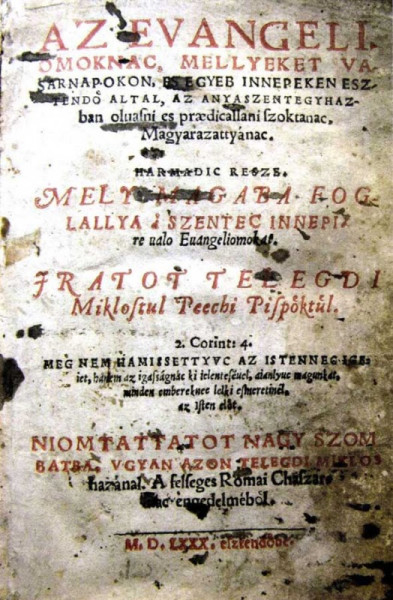 AZ EVANGELI,
OMOKNAC, MELLYEKET VA
SARNAPOKON, ES EGYEB INNEPEKEN ESZ-
TENDÓ ALTAL, AZ ANYASZENTEGYHAZ-
ban oluasni es prædicallani szoktanac,
Magyarazattyánac.
HARMADIC RESZE.
MELY MAGABA FOG
LALLYA á SZENTEC INNEPI-
re ualo Euangeliomokat.
IRATOT TELEGDI
Miklostul Peechi Pispöktűl.
2. Corint: 4.
MEG NEM HAMISSETTYVC AZ ISTENNEC IGE-
iet, hanem az igasságnac ki ielenteséuel, aianlyuc magunkat,
minden embereknec lelki esmeretinel,
az Isten elöt.
NIOMTATTATOT NAGY SZOM
BATBA, VGYAN AZON TELEGDI MIKLOS
hazánal. A felseges Római Chaszar-
nac engedelméböl.
M. D. LXXX. esztendöbe.